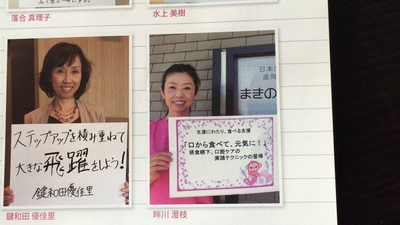 落合 真理子
水上 美樹
ステップアップを積み重ねて
大きな飛躍をしよう!
鍵和田優佳里
日本
歯周
まきの
生涯にわたり、食べる支援
「口から食べて、元気に!」
摂食嚥下、口腔ケアの
実践テクニックの習得
鍵和田 優佳里
畔川 澄枝